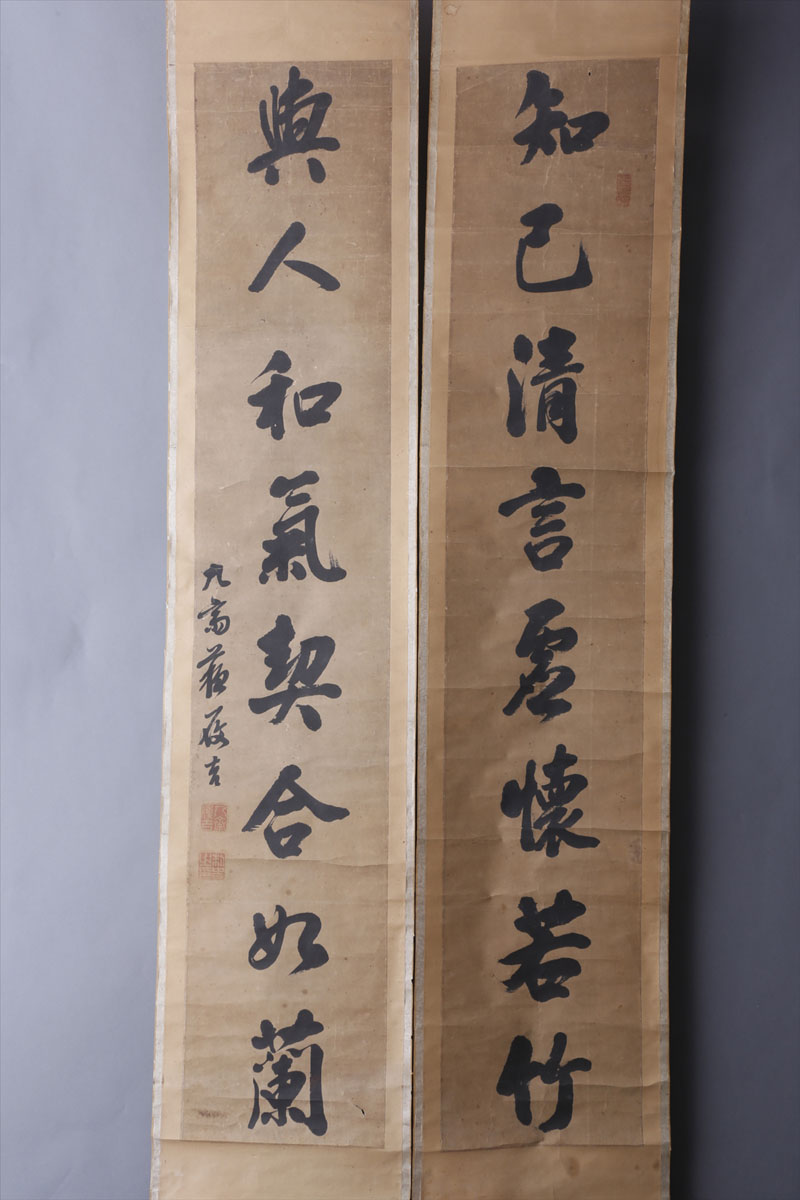 知己清言虛懷若竹
與人和氣契合如蘭
九齋蘇履吉